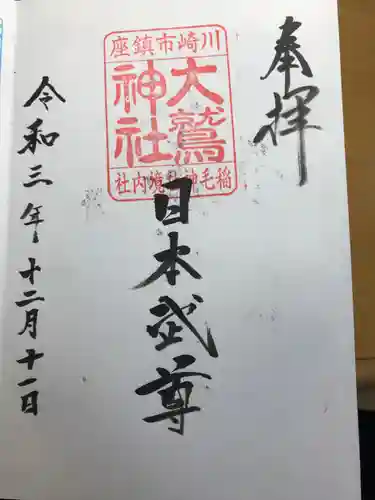 奉拝
川崎市鎮座
大鷲
神社
稲毛神社境内社
日本武尊
令和三年十二月十一日